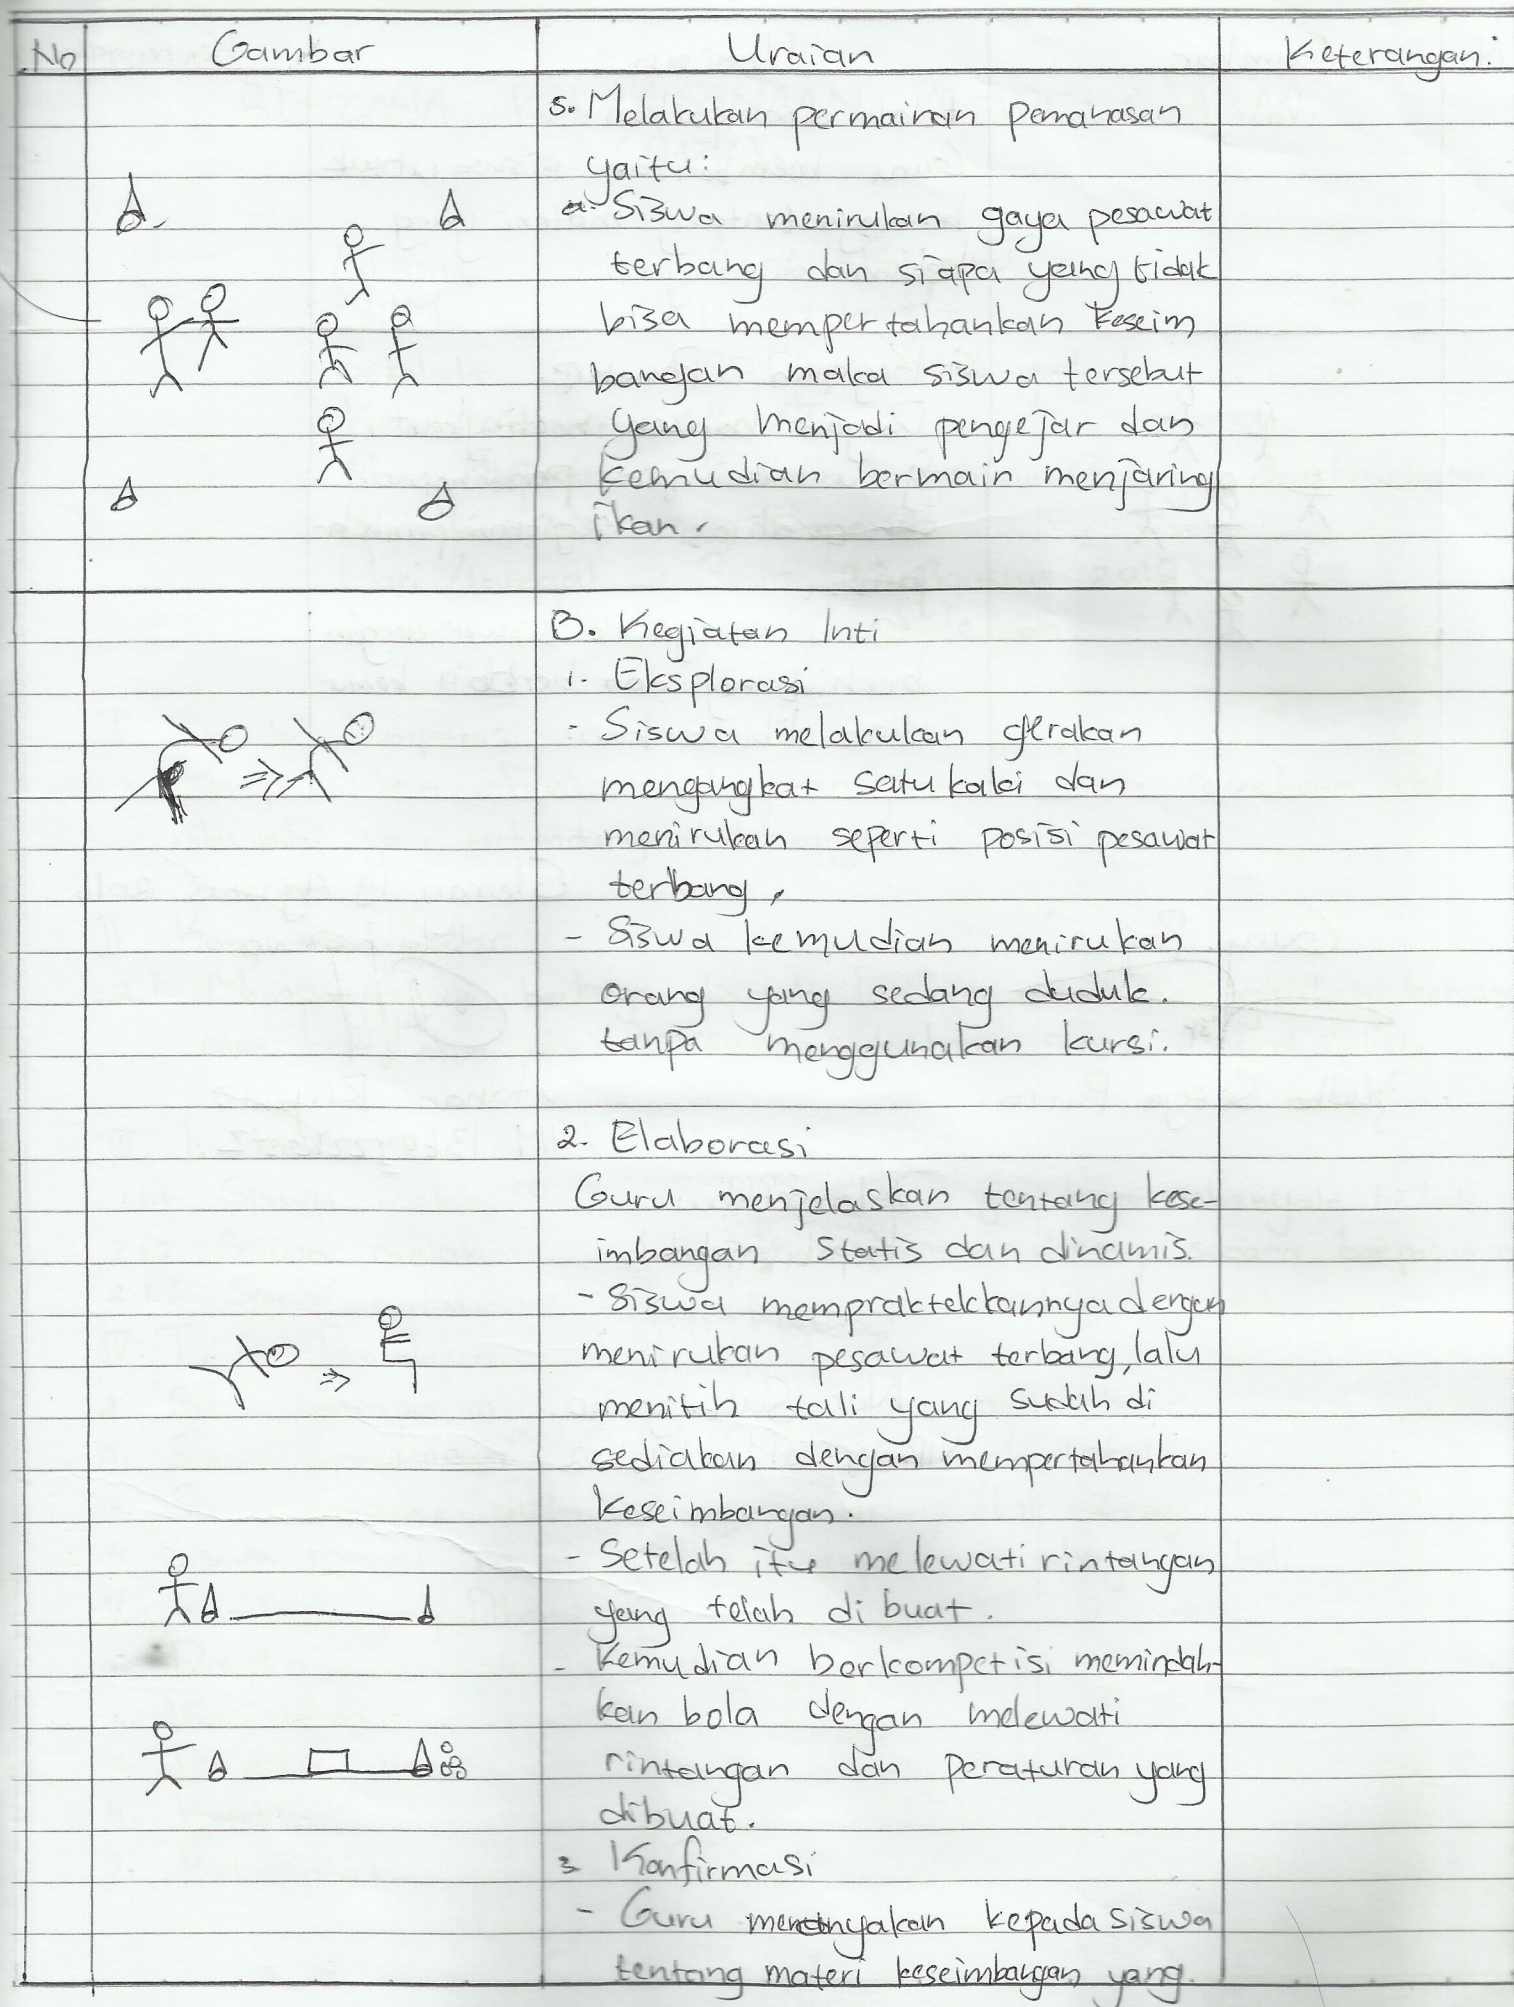 No Gambar Uraian Keterangan.
5. Melakukan permainan pemanasan
yaitu:
a. Siswa menirukan gaya pesawat
terbang dan siapa yang tidak
bisa mempertahankan keseim
bangan maka siswa tersebut
yang menjadi pengejar dan
kemudian bermain menjaring
ikan.
B. Kegiatan Inti
1. Eksplorasi
- Siswa melakukan gerakan
mengangkat satu kaki dan
menirukan seperti posisi pesawat
terbang,
- Siswa kemudian menirukan
orang yang sedang duduk.
tanpa menggunakan kursi.
2. Elaborasi
Guru menjelaskan tentang kese-
imbangan statis dan dinamis.
- Siswa mempraktekkannya dengan
menirukan pesawat terbang, lalu
menitih tali yang sudah di
sediakan dengan mempertahankan
keseimbangan.
- Setelah itu melewati rintangan
yang telah di buat.
- Kemudian berkompetisi memindah-
kan bola dengan melewati
rintangan dan peraturan yang
dibuat.
3 Konfirmasi
- Guru menanyakan kepada siswa
tentang materi keseimbangan yang